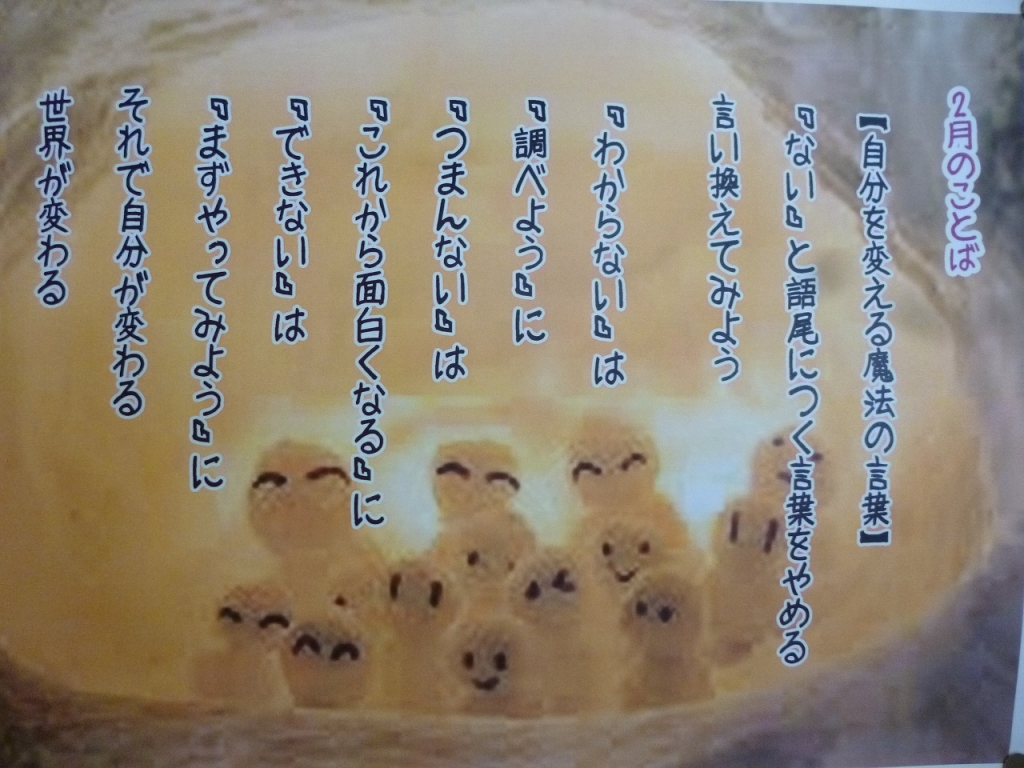 2月のことば
【自分を変える魔法の言葉】
『ない』と語尾につく言葉をやめる
言い換えてみよう
『わからない』は
『調べよう』に
『つまんない』は
『これから面白くなる』に
『できない』は
『まずやってみよう』に
それで自分が変わる
世界が変わる